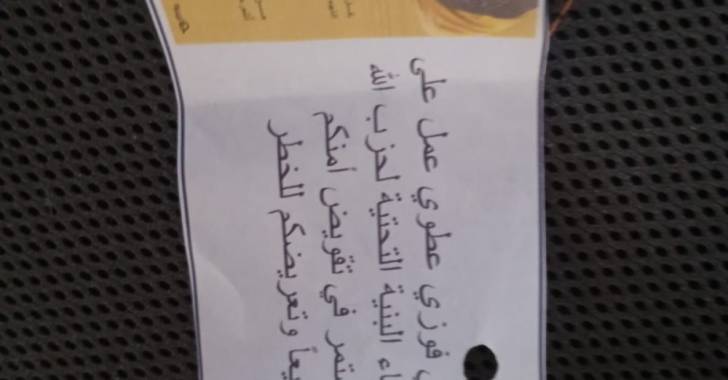 فوزي عطوي عمل على
البنية التحتية لحزب الله
في تقويض أمنكم
وتعريضكم للخطر